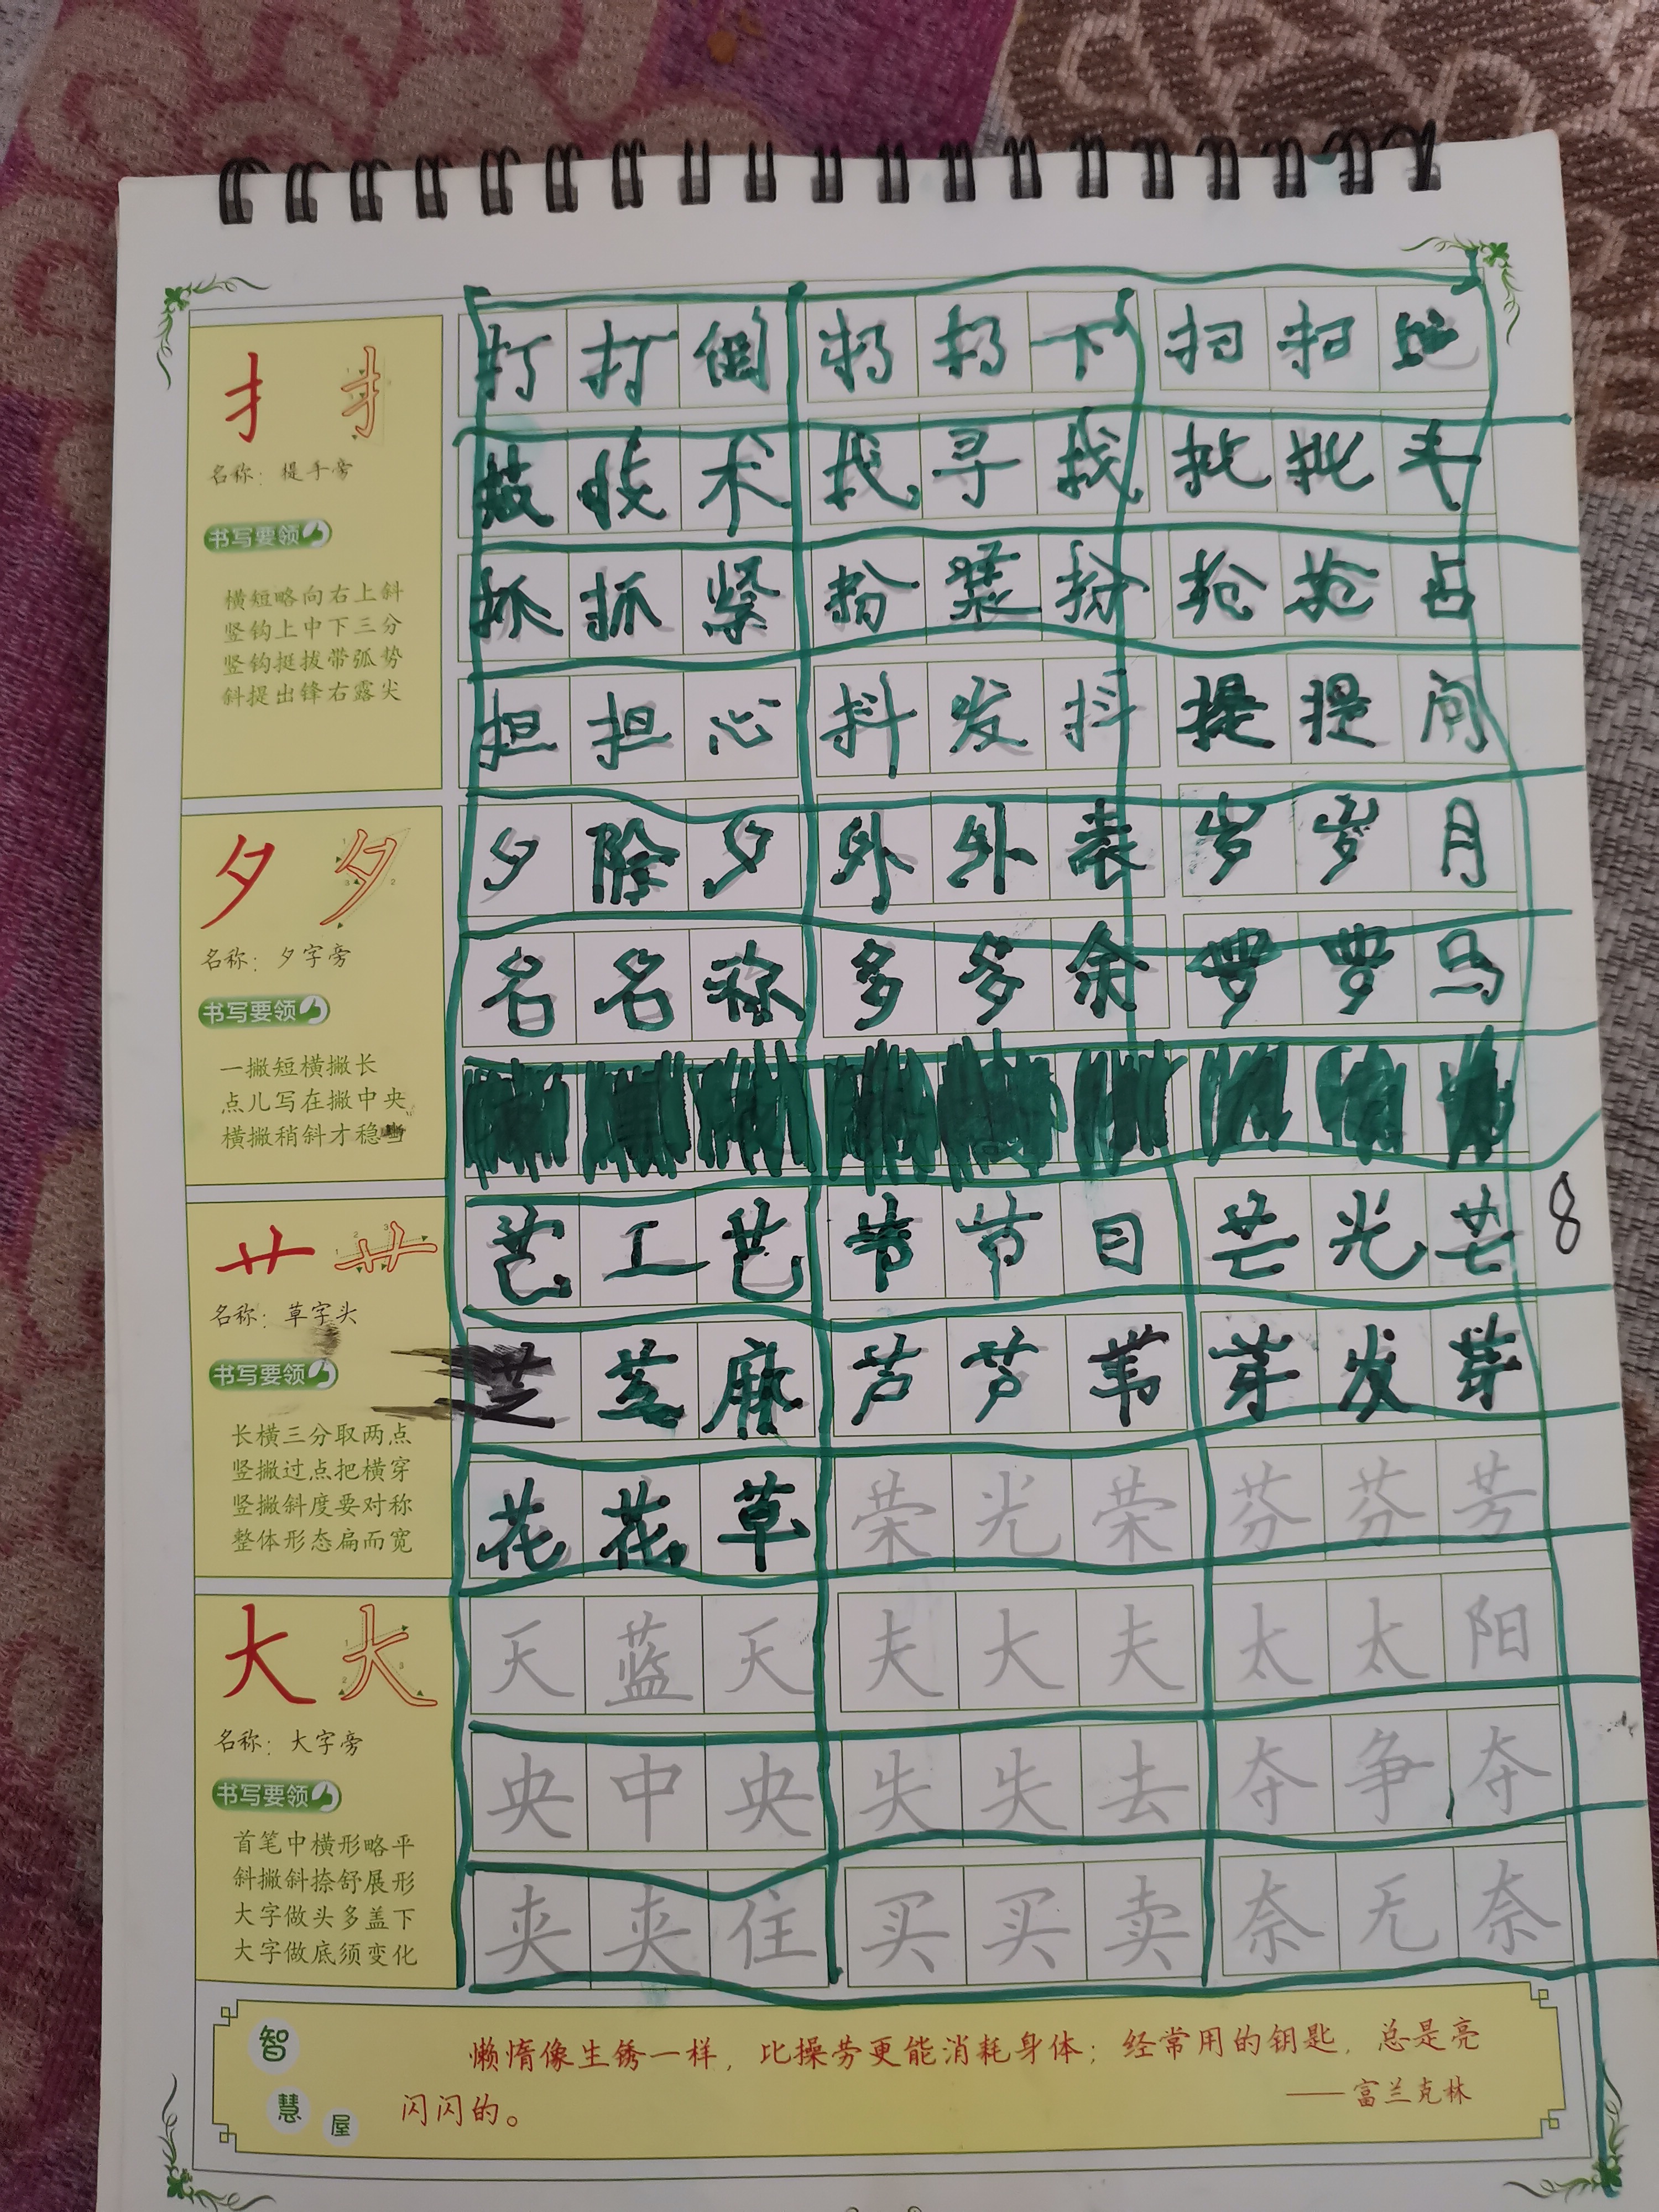 扌 扌
名称：提手旁
书写要领
横短略向右上斜
竖钩上中下三分
竖钩挺拔带弧势
斜提出锋右露尖
打 打 倒 扔 扔 下 扫 扫
技 技 术 找 寻 找 批 批 斗
抓 抓 紧 扮 装 扮 抢 抢 占
担 担 心 抖 发 抖 提 提 问
夕 夕
名称：夕字旁
书写要领
一撇短横撇长
点儿写在撇中央
横撇稍斜才稳当
夕 除 夕 外 外 表 岁 岁 月
名 名 称 多 多 余 罗 罗 马
艹 艹
名称：草字头
书写要领
长横三分取两点
竖撇过点把横穿
竖撇斜度要对称
整体形态扁而宽
艺 工 艺 节 节 目 芒 光 芒
8
芝 芝 麻 芦 芦 苇 芽 发 芽
花 花 草 荣 光 荣 芬 芬 芳
大 大
名称：大字旁
书写要领
首笔中横形略平
斜撇斜捺舒展形
大字做头多盖下
大字做底须变化
天 蓝 天 夫 大 夫 太 太 阳
央 中 央 失 失 去 夺 争 夺
夹 夹 住 买 买 卖 奈 无 奈
智慧屋
懒惰像生锈一样，比操劳更能消耗身体；经常用的钥匙，总是亮
闪闪的。
——富兰克林